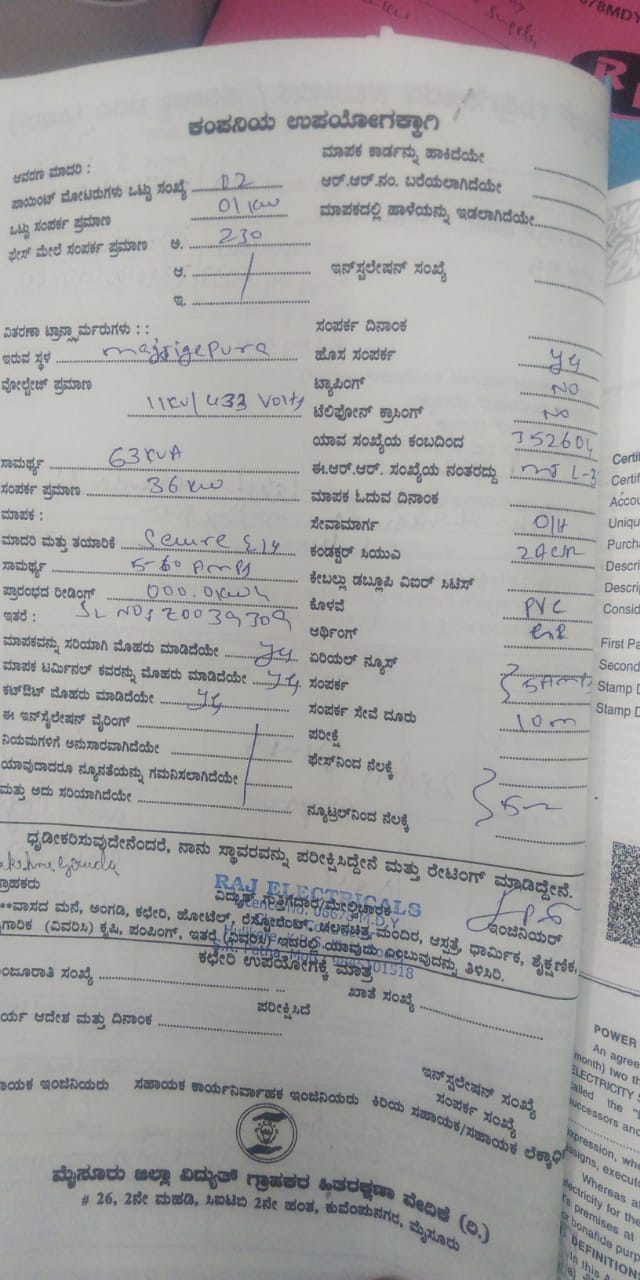 678MDY
Supply
ಕಂಪನಿಯ ಉಪಯೋಗಕ್ಕಾಗಿ
ಆವರಣ ಮಾದರಿ :
ಪಾಯಿಂಟ್ ಮೋಟರುಗಳು ಒಟ್ಟು ಸಂಖ್ಯೆ 02
ಒಟ್ಟು ಸಂಪರ್ಕ ಪ್ರಮಾಣ 01 KW
ಫೇಸ್ ಮೇಲೆ ಸಂಪರ್ಕ ಪ್ರಮಾಣ ಅ. 230
ಆ.
ಇ.
ವಿತರಣಾ ಟ್ರಾನ್ಸ್ಫಾರ್ಮರುಗಳು : :
ಇರುವ ಸ್ಥಳ majjigepura
ವೋಲ್ಟೇಜ್ ಪ್ರಮಾಣ
11KV/433 Volts
ಸಾಮರ್ಥ್ಯ 63KVA
ಸಂಪರ್ಕ ಪ್ರಮಾಣ 36 KW
ಮಾಪಕ :
ಮಾದರಿ ಮತ್ತು ತಯಾರಿಕೆ Secure
ಸಾಮರ್ಥ್ಯ 5-60 Amps
ಪ್ರಾರಂಭದ ರೀಡಿಂಗ್ 000.0KWh
ಇತರೆ : SL NO
ಮಾಪಕವನ್ನು ಸರಿಯಾಗಿ ಮೊಹರು ಮಾಡಿದೆಯೇ yes
ಮಾಪಕ ಟರ್ಮಿನಲ್ ಕವರನ್ನು ಮೊಹರು ಮಾಡಿದೆಯೇ yes
ಕಟ್‌ಔಟ್ ಮೊಹರು ಮಾಡಿದೆಯೇ yes
ಈ ಇನ್‌ಸ್ಟಲೇಷನ್ ವೈರಿಂಗ್
ನಿಯಮಗಳಿಗೆ ಅನುಸಾರವಾಗಿದೆಯೇ
ಯಾವುದಾದರೂ ನ್ಯೂನತೆಯನ್ನು ಗಮನಿಸಲಾಗಿದೆಯೇ
ಮತ್ತು ಅದು ಸರಿಯಾಗಿದೆಯೇ
ಮಾಪಕ ಕಾರ್ಡನ್ನು ಹಾಕಿದೆಯೇ
ಆರ್.ಆರ್.ನಂ. ಬರೆಯಲಾಗಿದೆಯೇ
ಮಾಪಕದಲ್ಲಿ ಹಾಳೆಯನ್ನು ಇಡಲಾಗಿದೆಯೇ
ಇನ್‌ಸ್ಟಲೇಷನ್ ಸಂಖ್ಯೆ
ಸಂಪರ್ಕ ದಿನಾಂಕ
ಹೊಸ ಸಂಪರ್ಕ yes
ಟ್ಯಾಪಿಂಗ್ NO
ಟೆಲಿಫೋನ್ ಕ್ರಾಸಿಂಗ್ NO
ಯಾವ ಸಂಖ್ಯೆಯ ಕಂಬದಿಂದ
ಈ.ಆರ್.ಆರ್. ಸಂಖ್ಯೆಯ ನಂತರದ್ದು
ಮಾಪಕ ಓದುವ ದಿನಾಂಕ
ಸೇವಾಮಾರ್ಗ O/H
ಕಂಡಕ್ಟರ್ ಸಿಯುವಿ
ಕೇಬಲ್ಲು ಡಬ್ಲೂಪಿ ವಿಐರ್ ಸಿಟಿಸ್
ಕೊಳವೆ PVC
ಆರ್ಥಿಂಗ್
ಏರಿಯಲ್ ನ್ಯೂಸ್
ಸಂಪರ್ಕ 5Amps
ಸಂಪರ್ಕ ಸೇವೆ ದೂರು 10m
ಪರೀಕ್ಷೆ
ಫೇಸ್‌ನಿಂದ ನೆಲಕ್ಕೆ
ನ್ಯೂಟ್ರಲ್‌ನಿಂದ ನೆಲಕ್ಕೆ
ಧೃಡೀಕರಿಸುವುದೇನೆಂದರೆ, ನಾನು ಸ್ಥಾವರವನ್ನು ಪರೀಕ್ಷಿಸಿದ್ದೇನೆ ಮತ್ತು ರೇಟಿಂಗ್ ಮಾಡಿದ್ದೇನೆ.
RAJ ELECTRICALS
ಗ್ರಾಹಕರು ವಿದ್ಯುತ್ ಗುತ್ತಿಗೆದಾರ/ಮೇಲ್ವಿಚಾರಕ ಇಂಜಿನಿಯರ್
**ವಾಸದ ಮನೆ, ಅಂಗಡಿ, ಕಛೇರಿ, ಹೋಟೆಲ್, ರೆಸ್ಟೋರೆಂಟ್, ಚಲನಚಿತ್ರ ಮಂದಿರ, ಆಸ್ಪತ್ರೆ, ಧಾರ್ಮಿಕ, ಶೈಕ್ಷಣಿಕ,
(ವಿವರಿಸಿ) ಕೃಷಿ, ಪಂಪಿಂಗ್, ಇತರೆ (ವಿವರಿಸಿ) ಇದರಲ್ಲಿ ಯಾವುದು ಎಂಬುವುದನ್ನು ತಿಳಿಸಿರಿ.
ಕಛೇರಿ ಉಪಯೋಗಕ್ಕೆ ಮಾತ್ರ
ಸಂಖ್ಯೆ ಖಾತೆ ಸಂಖ್ಯೆ
ಪರೀಕ್ಷಿಸಿದೆ
ಆದೇಶ ಮತ್ತು ದಿನಾಂಕ
ಇನ್‌ಸ್ಟಲೇಷನ್ ಸಂಖ್ಯೆ
ಸಂಪರ್ಕ ಸಂಖ್ಯೆ
ಇಂಜಿನಿಯರು ಸಹಾಯಕ ಕಾರ್ಯನಿರ್ವಾಹಕ ಇಂಜಿನಿಯರು ಕಿರಿಯ ಸಹಾಯಕ/ಸಹಾಯಕ
ಮೈಸೂರು ಜಿಲ್ಲಾ ವಿದ್ಯುತ್ ಗ್ರಾಹಕರ ಹಿತರಕ್ಷಣಾ ವೇದಿಕೆ (ರಿ.)
# 26, 2ನೇ ಮಹಡಿ, ಸಿಐಟಿಬಿ 2ನೇ ಹಂತ, ಕುವೆಂಪುನಗರ, ಮೈಸೂರು
First Pa
Second
Stamp D
Stamp D
POWER
An agree
month) two th
ELECTRICITY
DEFINITION